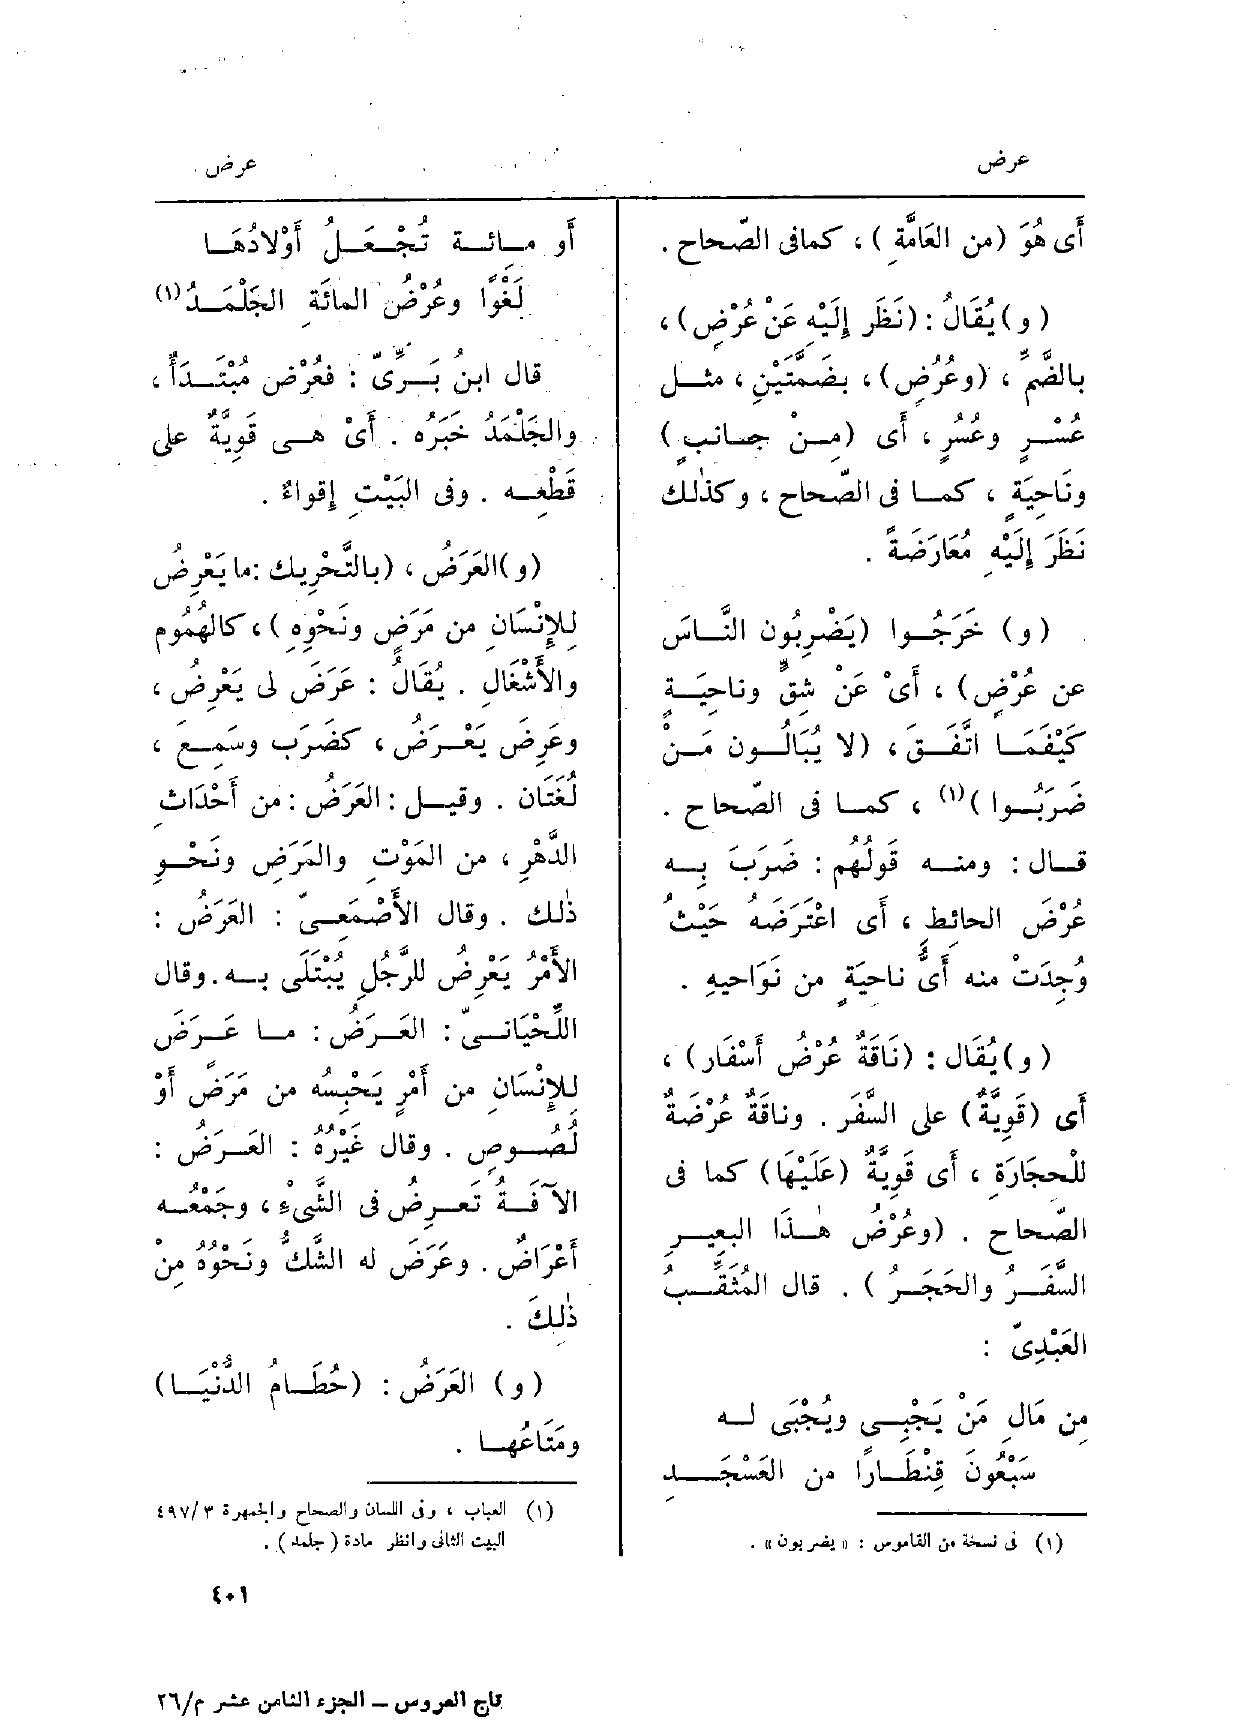 عرض
عرض
أى هُوَ (من العَامَّةِ) ، كمافى الصّحاح .
(و) يُقَالُ : (نَظَر إِلَيْهِ عَنْ عُرْضٍ) ،
بالضَّمِّ ، (وعُرُضٍ) ، بضَمَّتَيْنِ ، مثـل
عُسْـرٍ وعُسُرٍ ، أَى (مِـنْ جـانبٍ)
ونَاحِيَةٍ ، كمـا فى الصّحاح ، وكذٰلك
نَظَرَ إِلَيْهِ مُعَارَضَةً .
(و) خَرَجُـوا (يَضْرِبُون النَّـاسَ
عن عُرْضٍ) ، أَىْ عَنْ شِقٍّ وناحِيَـةٍ
كَيْفَمَـا اتَّفَـقَ ، (لا يُبَالُـون مَـنْ
ضَرَبُـوا)(١) ، كمـا فى الصّحاح .
قـال : ومنـه قَولُهُم : ضَرَبَ بِـه
عُرْضَ الحائط ، أَى اعْتَرَضَهُ حَيْثُ
وُجِدَتْ منه أَىُّ ناحيَةٍ من نَوَاحيهِ .
(و) يُقَال : (نَاقَةٌ عُرْضُ أَسْفَار) ،
أَى (قَوِيَّةٌ) على السَّفَر . وناقَةٌ عُرْضَةٌ
للْحجَارَةِ ، أَى قَويَّةٌ (عَلَيْهَا) كما فى
الصّحاح . (وعُرْضُ هٰـذَا البعيـرِ
السَّفَـرُ والحَجَـرُ) . قال المُثَقِّـبُ
العَبْدِىّ :
مِن مَالِ مَنْ يَجْبِـى ويُجْبَى لـه
سَبْعُونَ قِنْطَـارًا من العَسْجَـد
(١) فى نسخة من القاموس : « يضربون » .
أَو مـائـة تُجْـعَـلُ أَوْلادُهَـا
لَغْوًا وعُرْضُ المائَةِ الجَلْمَـدُ(١)
قال ابنُ بَـرىّ : فعُرْض مُبْتَـدَأٌ ،
والجَلْمَدُ خَبَرُه . أَىْ هـى قَوِيَّةٌ على
قَطْعِـه . وفى البَيْتِ إقواءٌ .
(و) العَرَضُ ، (بالتَّحْرِيك : ما يَعْرِضُ
لِلإِنْسَانِ من مَرَضٍ ونَحْوِهِ) ، كالهُمُومِ
والأَشْغَالِ . يُقَالُ : عَرَضَ لى يَعْرِضُ ،
وعَرِضَ يَعْـرَضُ ، كضَرَب وسَمِـعَ ،
لُغَتَان . وقيـل : العَرَضُ : من أَحْدَاثِ
الدَّهْرِ ، من المَوْتِ والمَرَضِ ونَحْـوِ
ذٰلك . وقال الأَصْمَعـىّ : العَرَضُ :
الأَمْرُ يَعْرِضُ للرَّجُلِ يُبْتَلَى بـه . وقال
اللِّحْيَانـىّ : العَـرَضُ : مـا عَـرَضَ
لِلإِنْسَانِ من أَمْرٍ يَحْبِسُه من مَرَضٍ أَوْ
لُصُـوصٍ . وقال غَيْرُهُ : العَـرَضُ :
الآفَـةُ تَعـرِضُ فى الشَّىْءِ ، وجَمْعُـه
أَعْرَاضٌ . وعَرَضَ له الشَّكُّ ونَحْوُهُ مِنْ
ذٰلِكَ .
(و) العَرَضُ : (حُطَـامُ الدُّنْيَـا)
ومَتَاعُهـا .
(١) العباب ، وفى اللسان والصحاح والجمهرة ٤٩٧/٣
البيت الثانى وانظر مادة (جلمد) .
٤٠١
تاج العروس ــ الجزء الثامن عشر م/٢٦